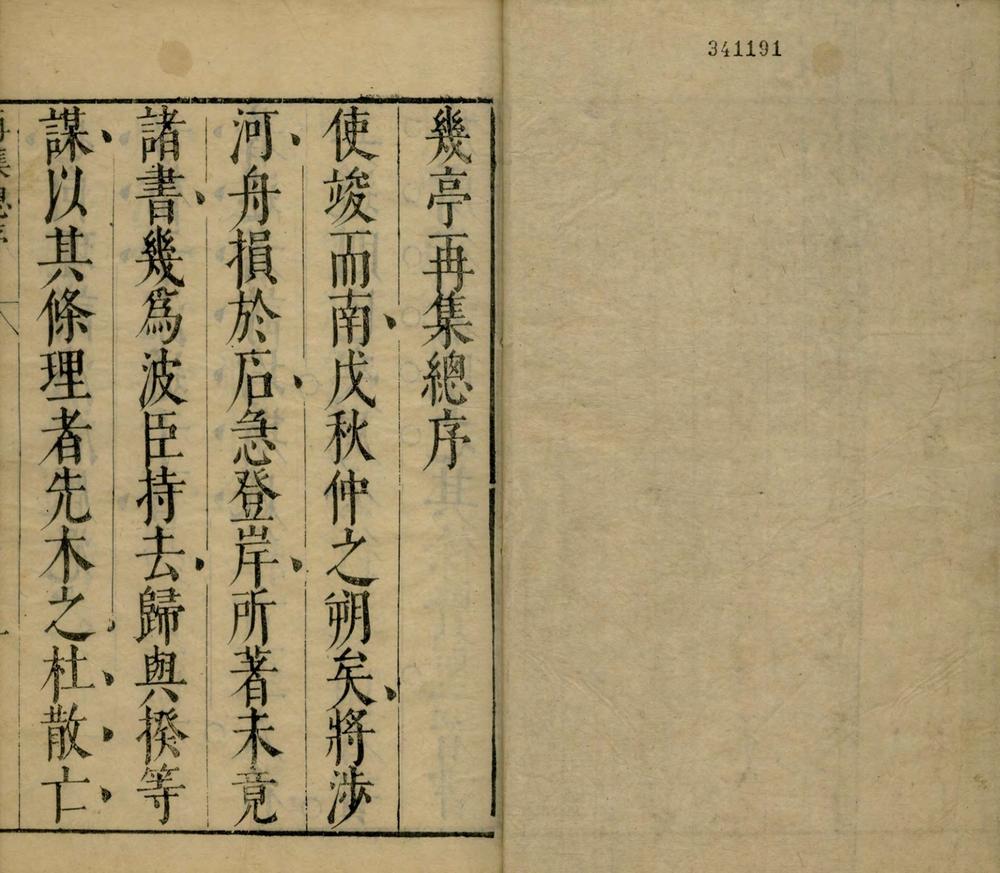 341191
幾亭再集總序
使竣而南戊秋仲之朔矣將涉
河舟損於石急登岸所著未竟
諸書幾爲波臣持去歸與揆等
謀以其條理者先木之杜散亡
再集總序